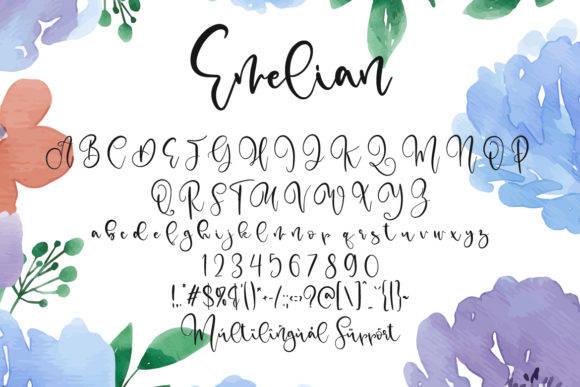 Emelian
A B C D E F G H I J K L M N O P
Q R S T U V W X Y Z
a b c d e f g h i j k l m n o p q r s t u v w x y z
1 2 3 4 5 6 7 8 9 0
!,"#$%&'()*+-/:;<>?@[\]^_`{|}~
Múltilingúál Süppört